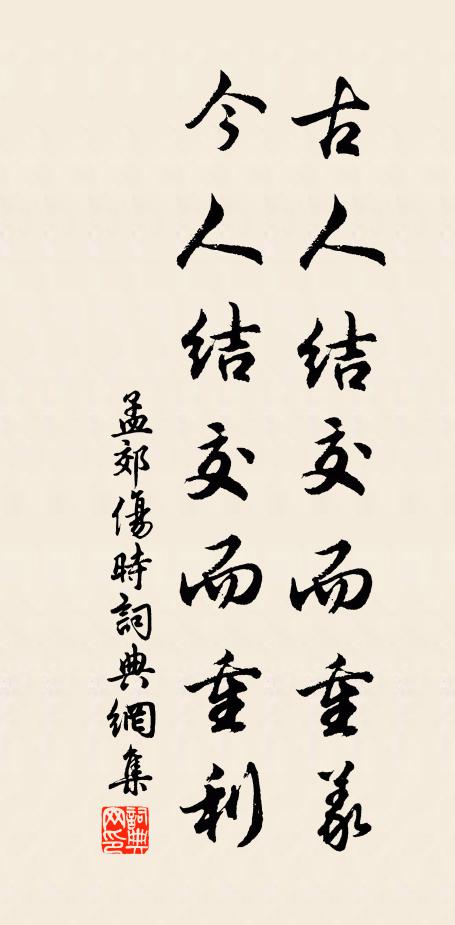 古人結交而重義
今人結交而重利
孟郊傷時詞典網集
詞典网印